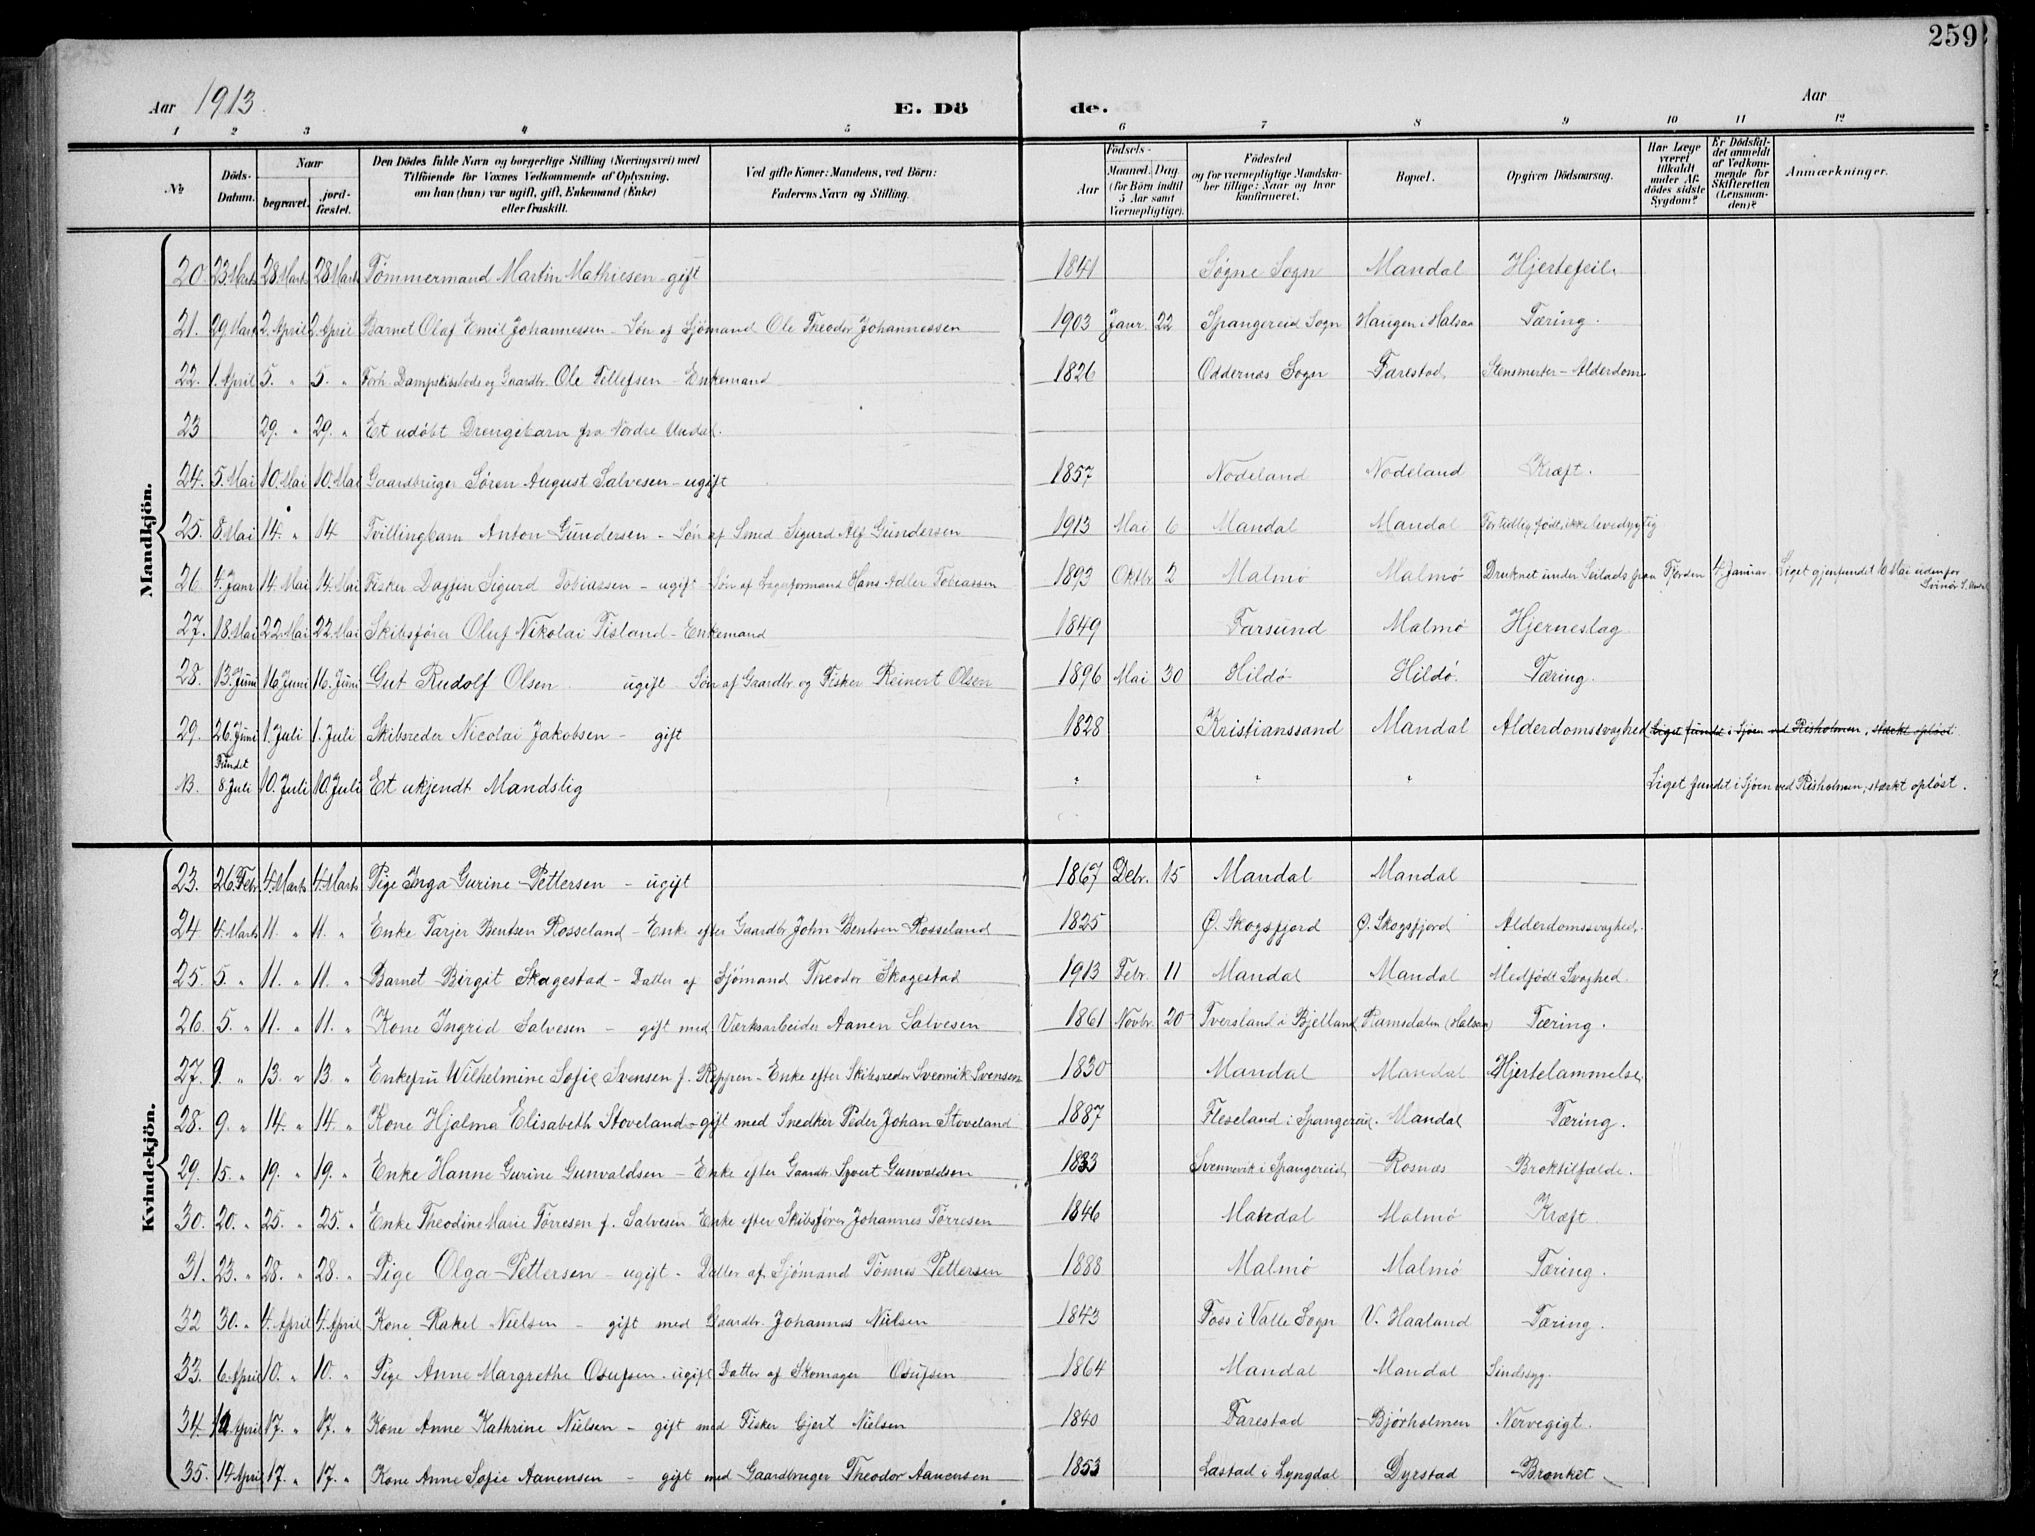 259
Aar 1913.
E. Dö de.
Aar
1 2 3 4 5 6 7 8 9 10 11 12
No
Döds-Datum.
Naar begravet.
jord-fæstet.
Den Dödes fulde Navn og borgerlige Stilling (Næringsvei) med Tilföiende for Voxnes Vedkommende af Oplysning, om han (hun) var ugift, gift, Enkemand (Enke) eller fraskilt.
Ved gifte Koner: Mandens, ved Börn: Faderens Navn og Stilling.
Födsels-
Aar
Maaned. Dag (for Börn indtil 5 Aar samt Værnepligtige).
Födested og for værnepligtige Mandskaber tillige: Naar og hvor konfirmeret.
Bopæl.
Opgiven Dödsaarsag.
Har Læge været tilkaldt under Afdödes sidste Sygdom?
Er Dödsfaldet anmeldt af Vedkommende for Skifteretten (Lensmanden)?
Anmærkninger.
Mandkjön.
20. 23. Marts 28 Marts 28 Marts Tømmermand Martin Mathiesen - gift 1841 Søgne Sogn Mandal Hjertefeil.
21. 29 Marts 2. April 2. April Barnet Olaf Emil Johannessen - Søn af Sjömand Ole Theodor Johannessen 1903 Janr. 22 Spangereid Sogn Haugen i Halsaa Tæring.
22. 1. April 5. " 5. " Forh. Dampskibslods og Gaardbr. Ole Tellefsen - Enkemand 1826 Oddernæs Sogn Farestad Stensmerter - Alderdom.
23 29. " 29. " Et udöbt Drengebarn fra Nordre Undal.
24. 5. Mai 10. Mai 10. Mai Gaardbruger Søren August Salvesen - ugift 1857 Nodeland Nodeland Kræft.
25. 8. Mai 14. " 14 Tvillingbarn Anton Gundersen - Søn af Smed Sigurd Alf Gundersen 1913 Mai 6 Mandal Mandal For tidlig födt, ikke levedygtig
26 4. Janr 14. Mai 14. Mai Fisker Dagfin Sigurd Tobiassen - ugift - Søn af Lagerformand Hans Adler Tobiassen 1893 Oktbr. 2 Malmö Malmö Druknet under Seilads fra Fjorden 4 Januar. Liget gjenfundet 10 Mai udenfor
Svinör S. Undal
27. 18. Mai 22. Mai 22. Mai Skibsfører Oluf Nikolai Tisland - Enkemand 1849 Farsund Malmö Hjerneslag
28. 13. Juni 16 Juni 16. Juni Gut Rudolf Olsen. ugift - Søn af Gaardbr. og Fisker Reinert Olsen 1896 Mai 30 Hildö Hildö. Tæring.
29. 26. Juni 1. Juli 1. Juli Skibsreder Nicolai Jakobsen - gift 1828 Kristianssand Mandal Alderdomssvaghed Liget fundet i Sjøen ved Risholmen, stærkt opløst
Fundet
B. 8. Juli 10. Juli 10. Juli Et ukjendt Mandslig " " " Liget fundet i Sjøen ved Risholmen, stærkt opløst.
Kvindekjön.
23. 26. Febr. 4. Marts 4. Marts Pige Inga Gurine Pettersen - ugift 1867 Debr. 15 Mandal Mandal
24 4. Marts 11. " 11. " Enke Tarjer Bentsen Rosseland - Enke efter Gaardbr John Bentsen Rosseland 1825 Ø. Skogsfjord Ø. Skogsfjord Alderdomssvaghed.
25. 5. " 11. " 11. " Barnet Birgit Skagestad - Datter af Sjömand Theodor Skagestad 1913 Febr. 11 Mandal Mandal Medfödt Svaghed.
26. 5. " 11. " 11. " Kone Ingrid Salvesen - gift med Værksarbeider Aanen Salvesen 1861 Novbr. 20 Tversland i Bjelland Ramsdalen (Halsaa) Tæring.
27. 9. " 13. " 13. " Enkefru Wilhelmine Sofie Svensen f. Reppen - Enke efter Skibsreder Svennik Svensen 1830 Mandal Mandal Hjertelammelse
28. 9. " 14. " 14. " Kone Hjalma Elisabeth Stoveland - gift med Snedker Peder Johan Stoveland 1887 Fleseland i Spangereid. Mandal Tæring.
29. 15. " 19. " 19. " Enke Hanne Gurine Gunvaldsen - Enke efter Gaardbr. Sjvert Gunvaldsen 1833 Svennevik i Spangereid Rosnæs Broktilfælde.
30. 20. " 25. " 25. " Enke Theodine Marie Törresen f. Salvesen Enke efter Skibsfører Johannes Törresen 1846 Mandal Malmö Kræft
31. 23. " 28. " 28. " Pige Olga Pettersen - ugift - Datter af Sjömand Tönnes Pettersen 1888 Malmö Malmö Tæring.
32 30. " 4. April 4. April Kone Rakel Nielsen - gift med Gaardbr. Johannes Nielsen 1843 Foss i Valle Sogn V. Haaland Tæring.
33. 6. April 10. " 10. " Pige Anne Margrethe Osufsen - ugift Datter af Skomager Osufsen 1864 Mandal Mandal Sindssyg.
34. April 17. " 17. " Kone Anne Kathrine Nielsen - gift med Fisker Gjert Nielsen 1840 Farestad Bjørholmen Nervegigt.
35. 14 April 17. " 17. " Kone Anne Sofie Aanensen - gift med Gaardbruger Theodor Aanensen 1853 Lastad i Lyngdal Dyrstad Bronkit